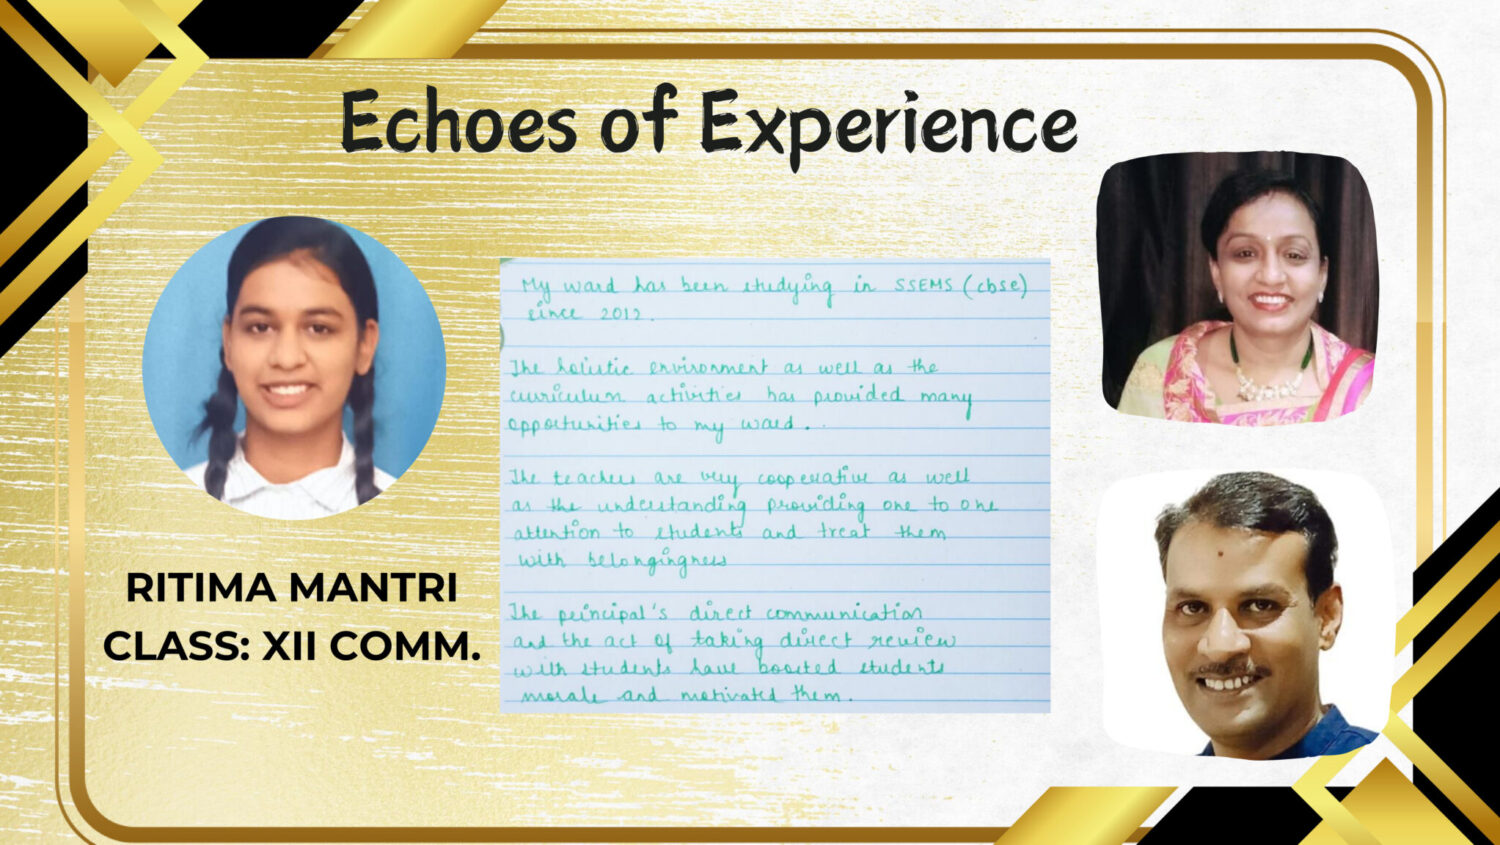 Echoes of Experience
RITIMA MANTRI
CLASS: XII COMM.
My ward has been studying in SSEMS (cbse)
since 2012.
The holistic environment as well as the
curriculum activities has provided many
opportunities to my ward..
The teachers are very cooperative as well
as the understanding providing one to one
attention to students and treat them
with belongingness
The principal's direct communication
and the act of taking direct review
with students have boosted students
morale and motivated them.